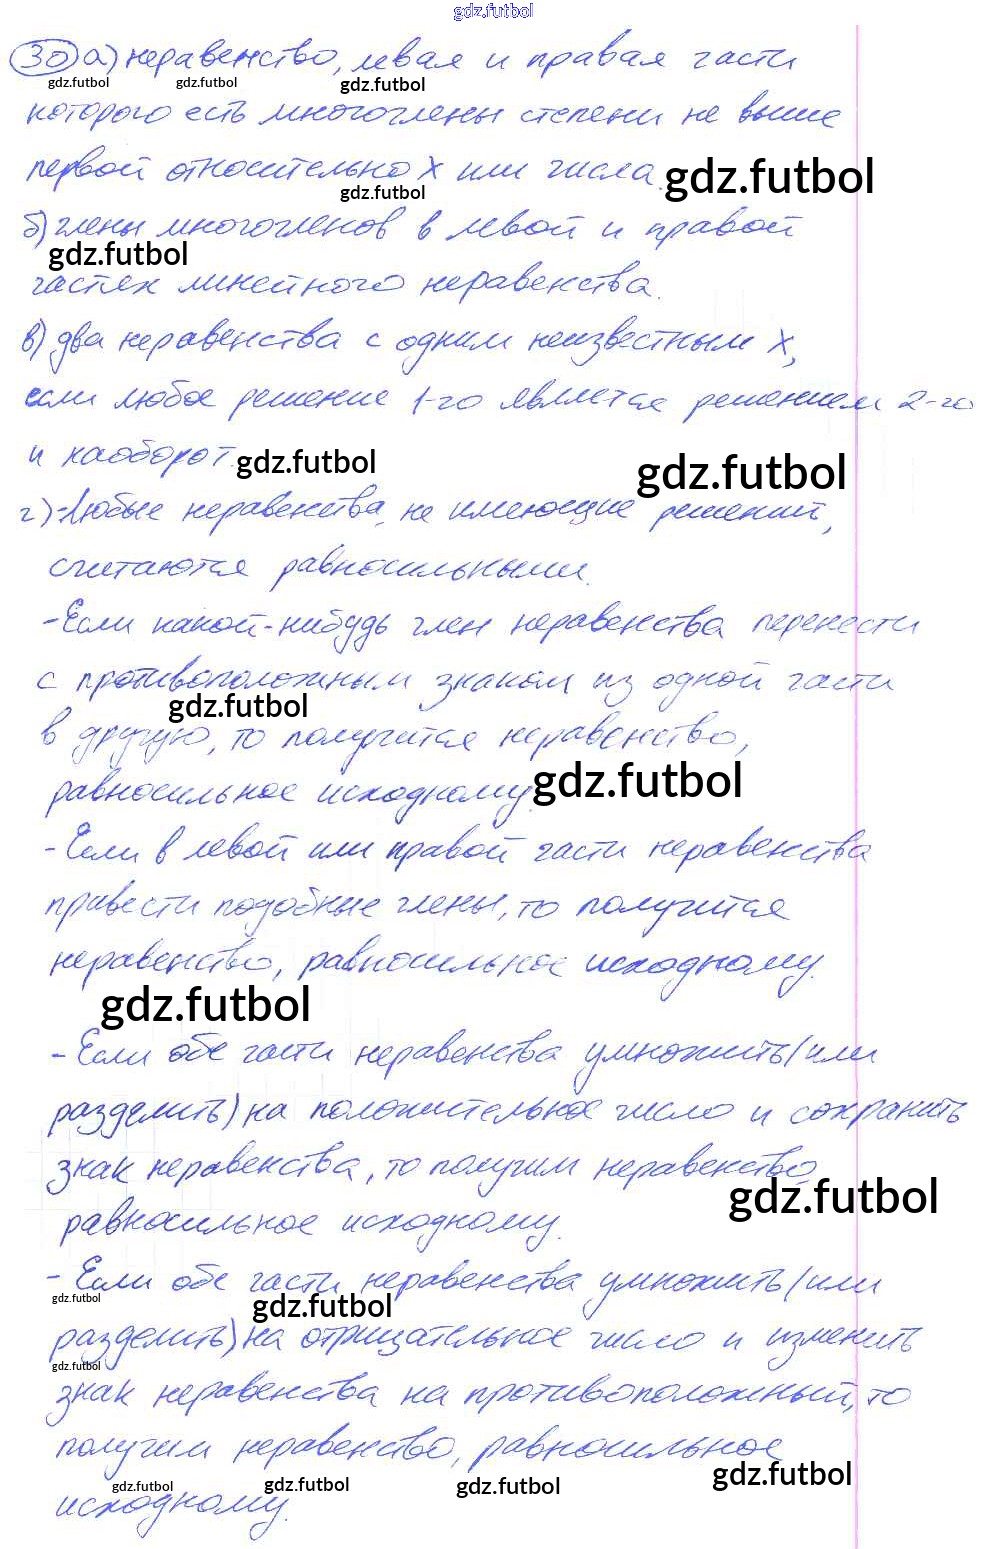 gdz.futbol
30 а) неравенство, левая и правая части
gdz.futbol gdz.futbol gdz.futbol
которого есть многочлены степени не выше
первой относительно x или числа.
gdz.futbol gdz.futbol
б) члены многочленов в левой и правой
gdz.futbol
частях линейного неравенства.
в) два неравенства с одним неизвестным x,
если любое решение 1-го является решением 2-го
и наоборот.
gdz.futbol gdz.futbol
г) -Любые неравенства, не имеющие решений,
считаются равносильными.
-Если какой-нибудь член неравенства перенести
с противоположным знаком из одной части
gdz.futbol
в другую, то получится неравенство,
равносильное исходному.
gdz.futbol
-Если в левой или правой части неравенства
привести подобные члены, то получится
неравенство, равносильное исходному.
gdz.futbol
-Если обе части неравенства умножить (или
разделить) на положительное число и сохранить
знак неравенства, то получим неравенство,
gdz.futbol
равносильное исходному.
-Если обе части неравенства умножить (или
gdz.futbol gdz.futbol
разделить) на отрицательное число и изменить
gdz.futbol
знак неравенства на противоположный, то
получим неравенство, равносильное
gdz.futbol gdz.futbol gdz.futbol gdz.futbol
исходному.